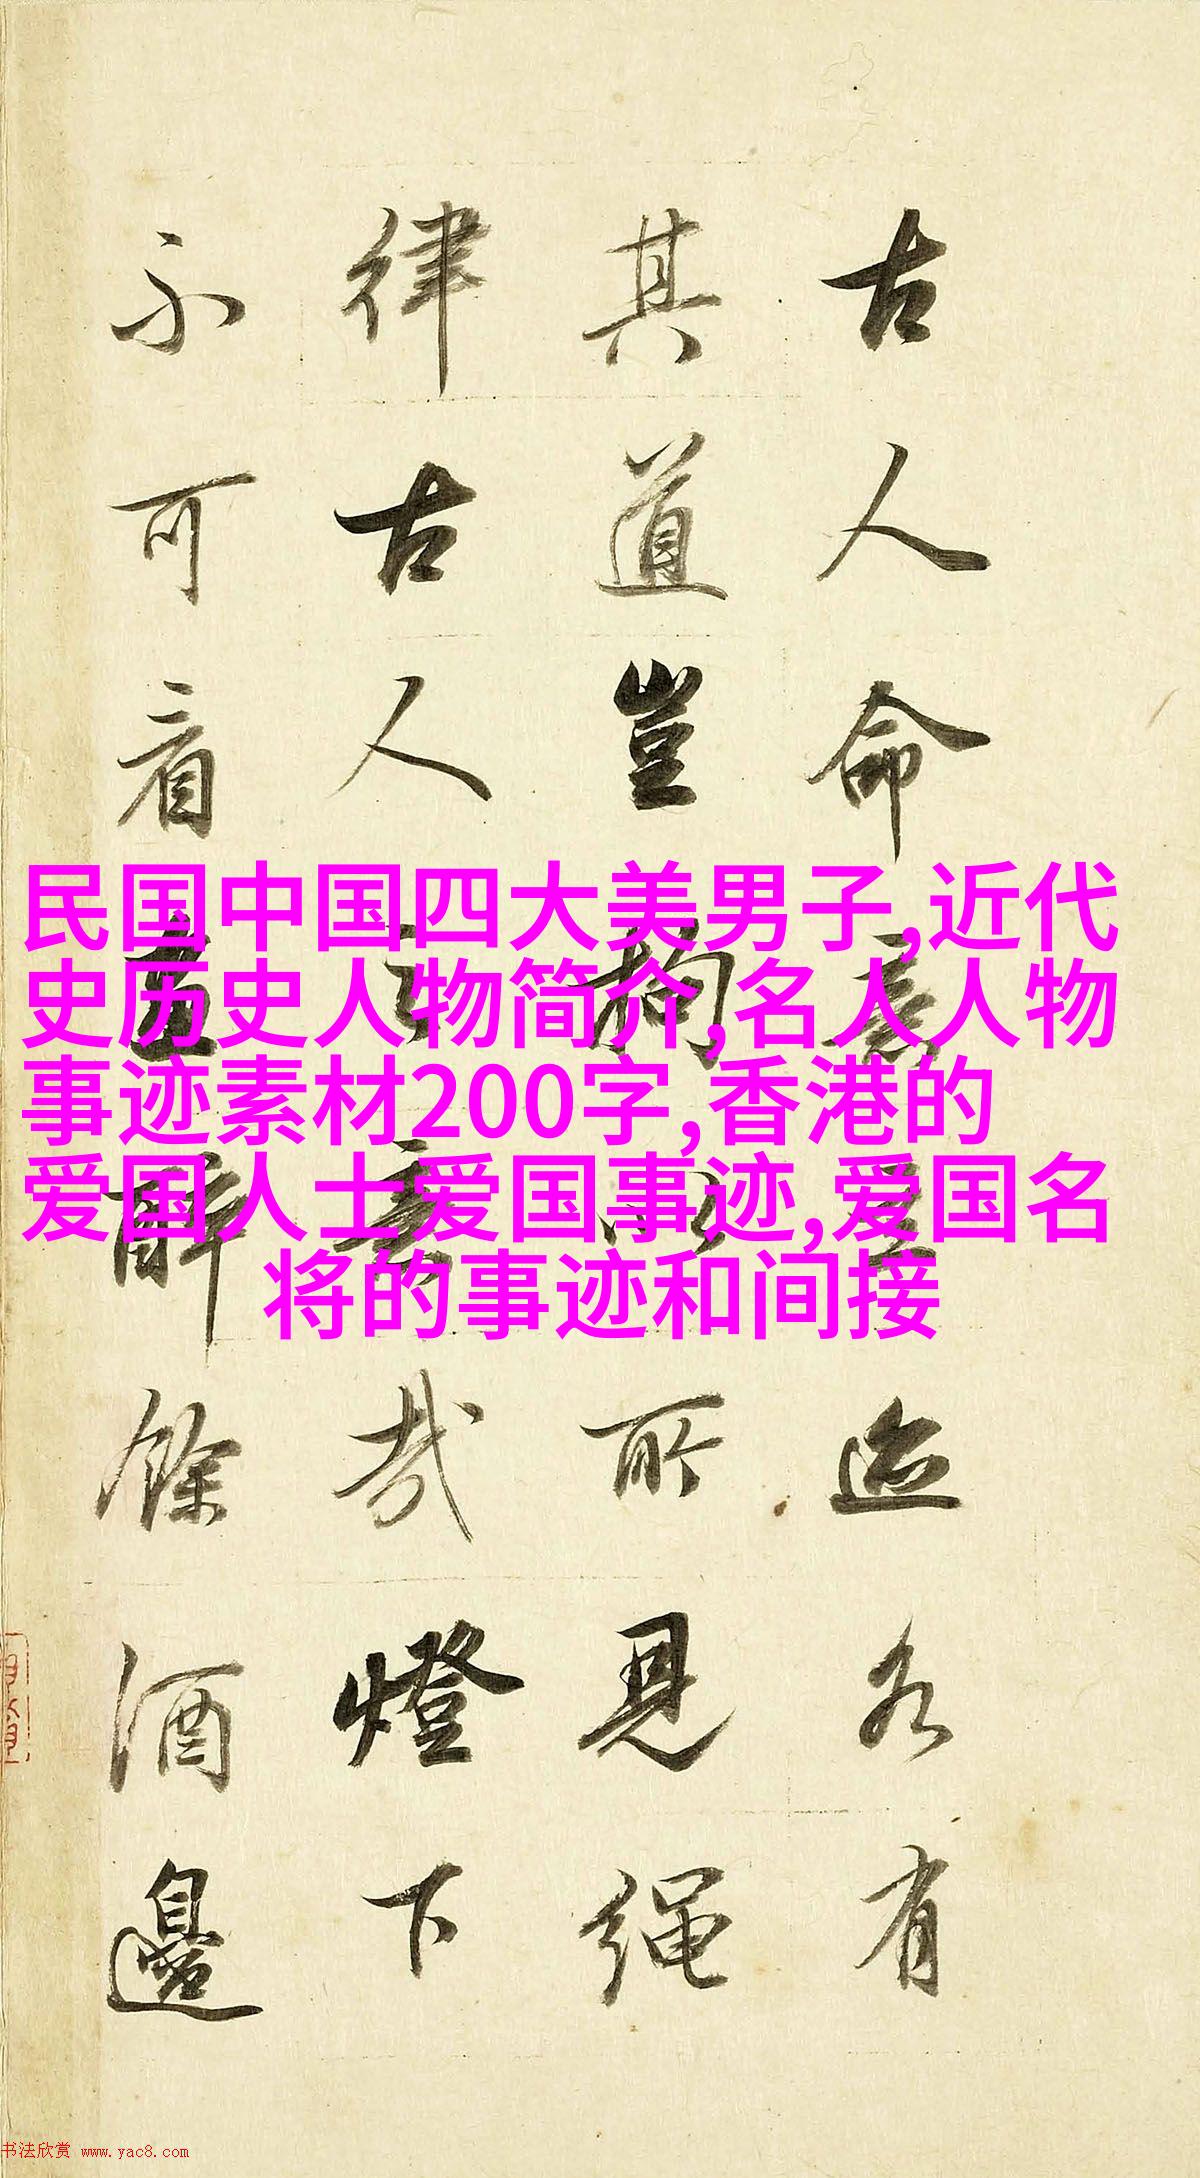 古人命意立迹各有
其道豈拘以所見繩
律古人之意哉燈下
不可看画醉餘酒邊
民国中国四大美男子,近代
史历史人物简介,名人人物
事迹素材200字,香港的
爱国人士爱国事迹,爱国名
将的事迹和间接
书法欣赏 www.yac8.com